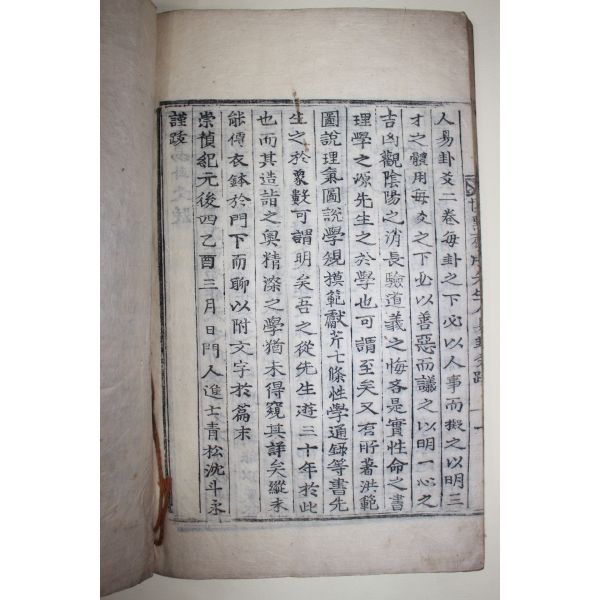 人易卦爻二卷每卦之下必以人事而擬之以明三
才之體用每爻之下必以善惡而議之以明一心之
吉凶觀陰陽之消長驗道義之悔吝是實性命之書
理學之源先生之於學也可謂至矣又有所著洪範
圖說理氣圖說學規摸範獻芹七條性學通錄等書先
生之於象數可謂明矣吾之從先生遊三十年於此
也而其造詣之奧精深之學猶未得窺其詳矣縱未
能傳衣鉢於門下而聊以附文字於篇末
崇禎紀元後四乙酉三月日門人進士青松沈斗永
謹跋